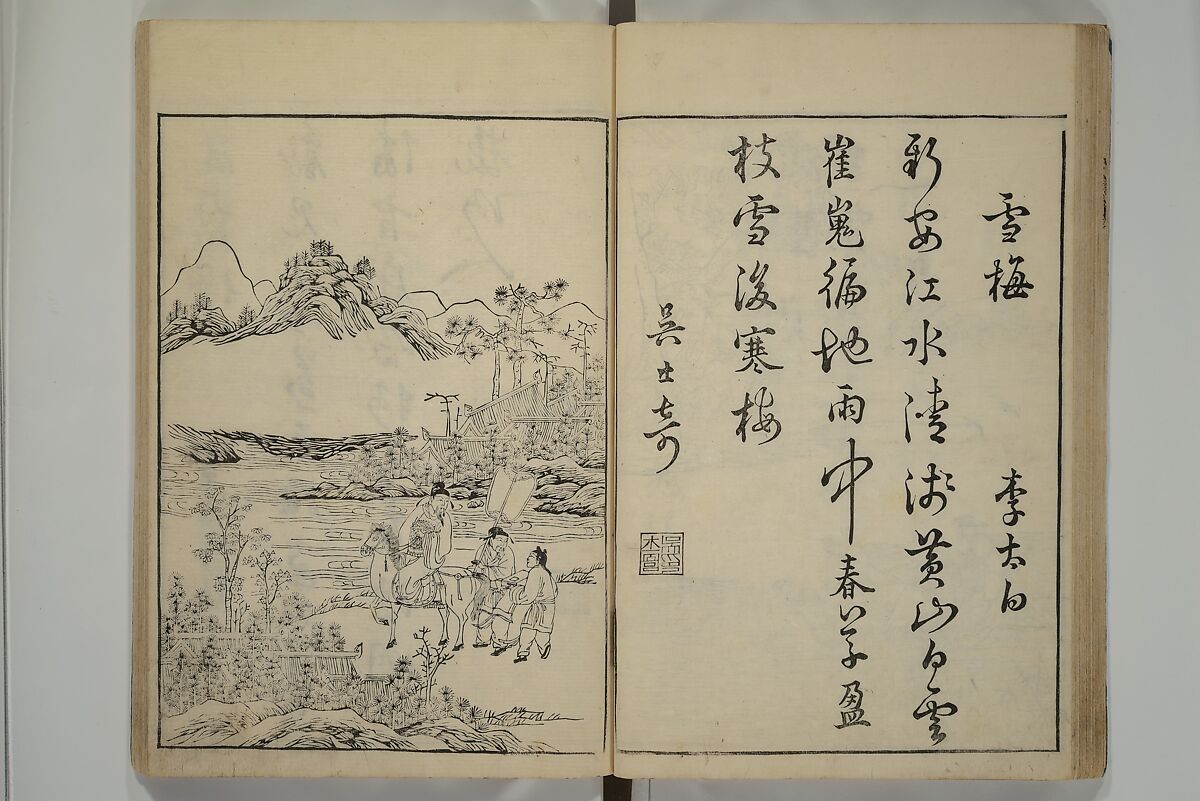 雪梅　李太白
新安江水清淺黃山白雲
崔嵬徧地雨中春草盈
枝雪後寒梅
吳士奇